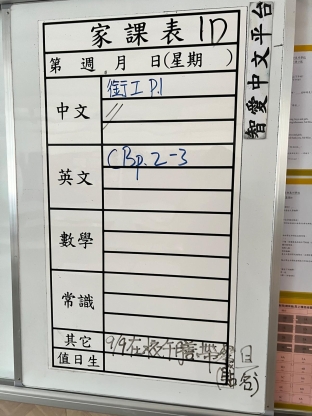 家課表 1D
智愛中文平台
第 週 月 日(星期 )
中文
銜工 P.1
英文
CB p.2-3
數學
常識
其它
9/9在校午膳
日
值日生